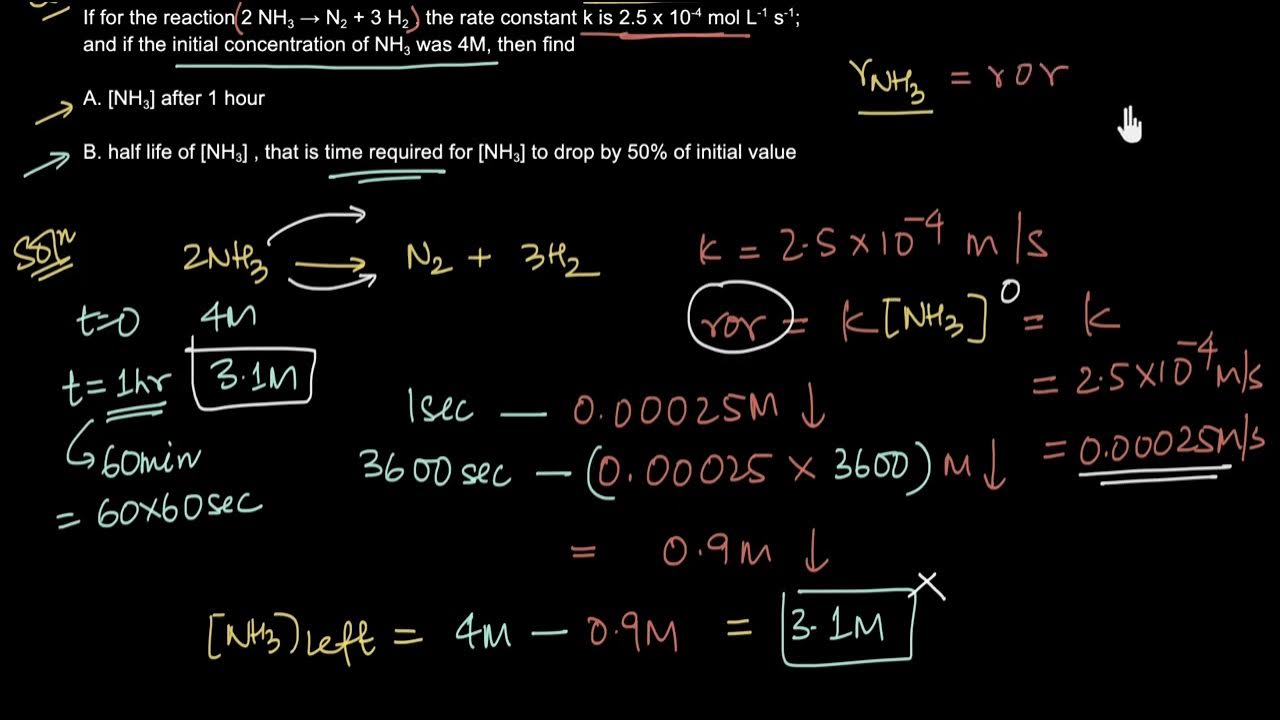 If for the reaction(2 NH₃ → N₂ + 3 H₂) the rate constant k is 2.5 x 10⁻⁴ mol L⁻¹ s⁻¹;
and if the initial concentration of NH₃ was 4M, then find
A. [NH₃] after 1 hour
B. half life of [NH₃] , that is time required for [NH₃] to drop by 50% of initial value
rNH₃ = ror
Solⁿ
2NH₃ → N₂ + 3H₂
t=0 4M
t= 1hr 3.1M
60min
= 60x60sec
k = 2.5x10⁻⁴ m/s
ror = k[NH₃]⁰ = k
= 2.5x10⁻⁴m/s
= 0.00025m/s
1sec — 0.00025M ↓
3600sec — (0.00025 x 3600) M ↓
= 0.9M ↓
[NH₃]left = 4M — 0.9M = 3.1M x